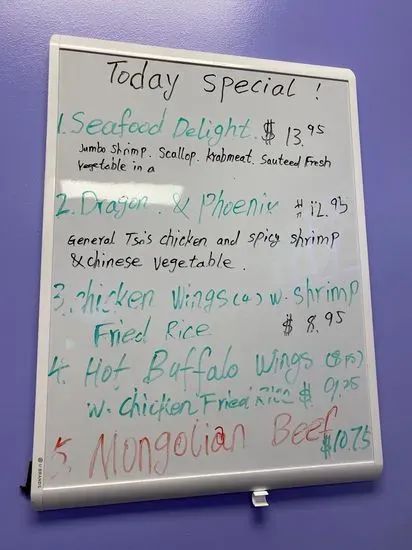 Today Special !
1. Seafood Delight. $ 13.95
Jumbo Shrimp. Scallop. Krabmeat. Sauteed Fresh
Vegetable in a
2. Dragon. & Phoenix $12.95
General Tso's chicken and spicy shrimp
& chinese vegetable.
3. Chicken Wings (4) w. shrimp
Fried Rice $ 8.95
4. Hot Buffalo Wings (8 ps)
w. chicken Fried Rice $ 9.25
5. Mongolian Beef
$10.75
U BRANDS